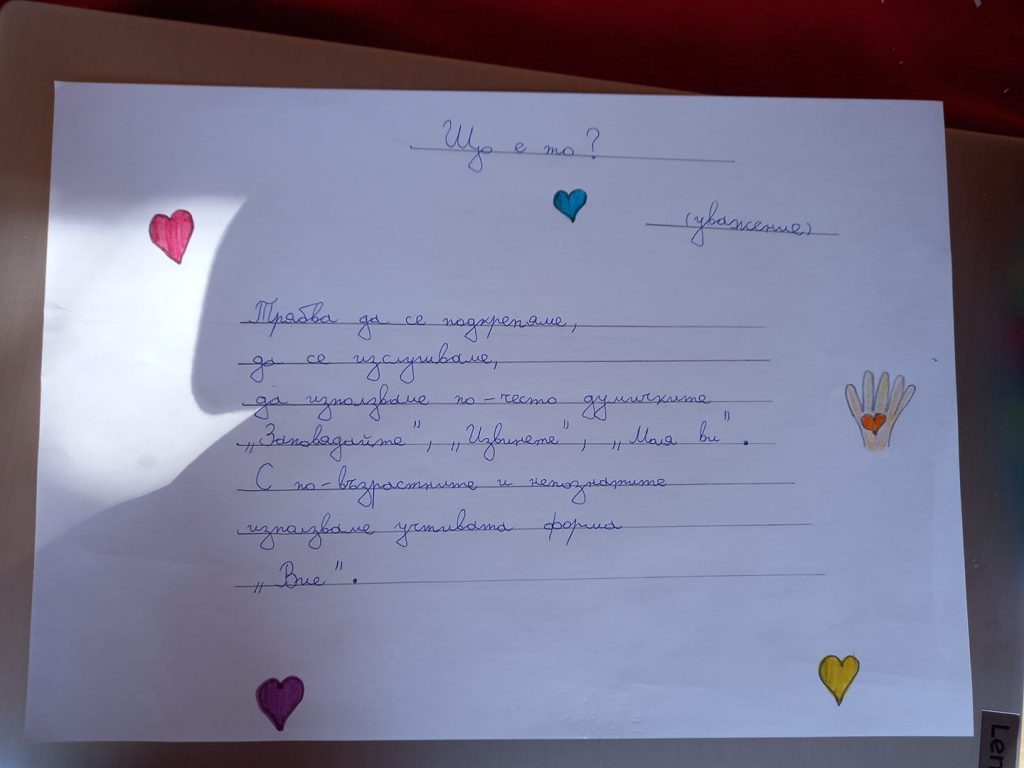 Що е то?
(уважение)
Трябва да се подкрепяме,
да се изслушваме,
да използваме по-често думичките
„Заповядайте", „Извинете", „Моля ви".
С по-възрастните и непознатите
използваме учтивата форма
„Вие".
Len